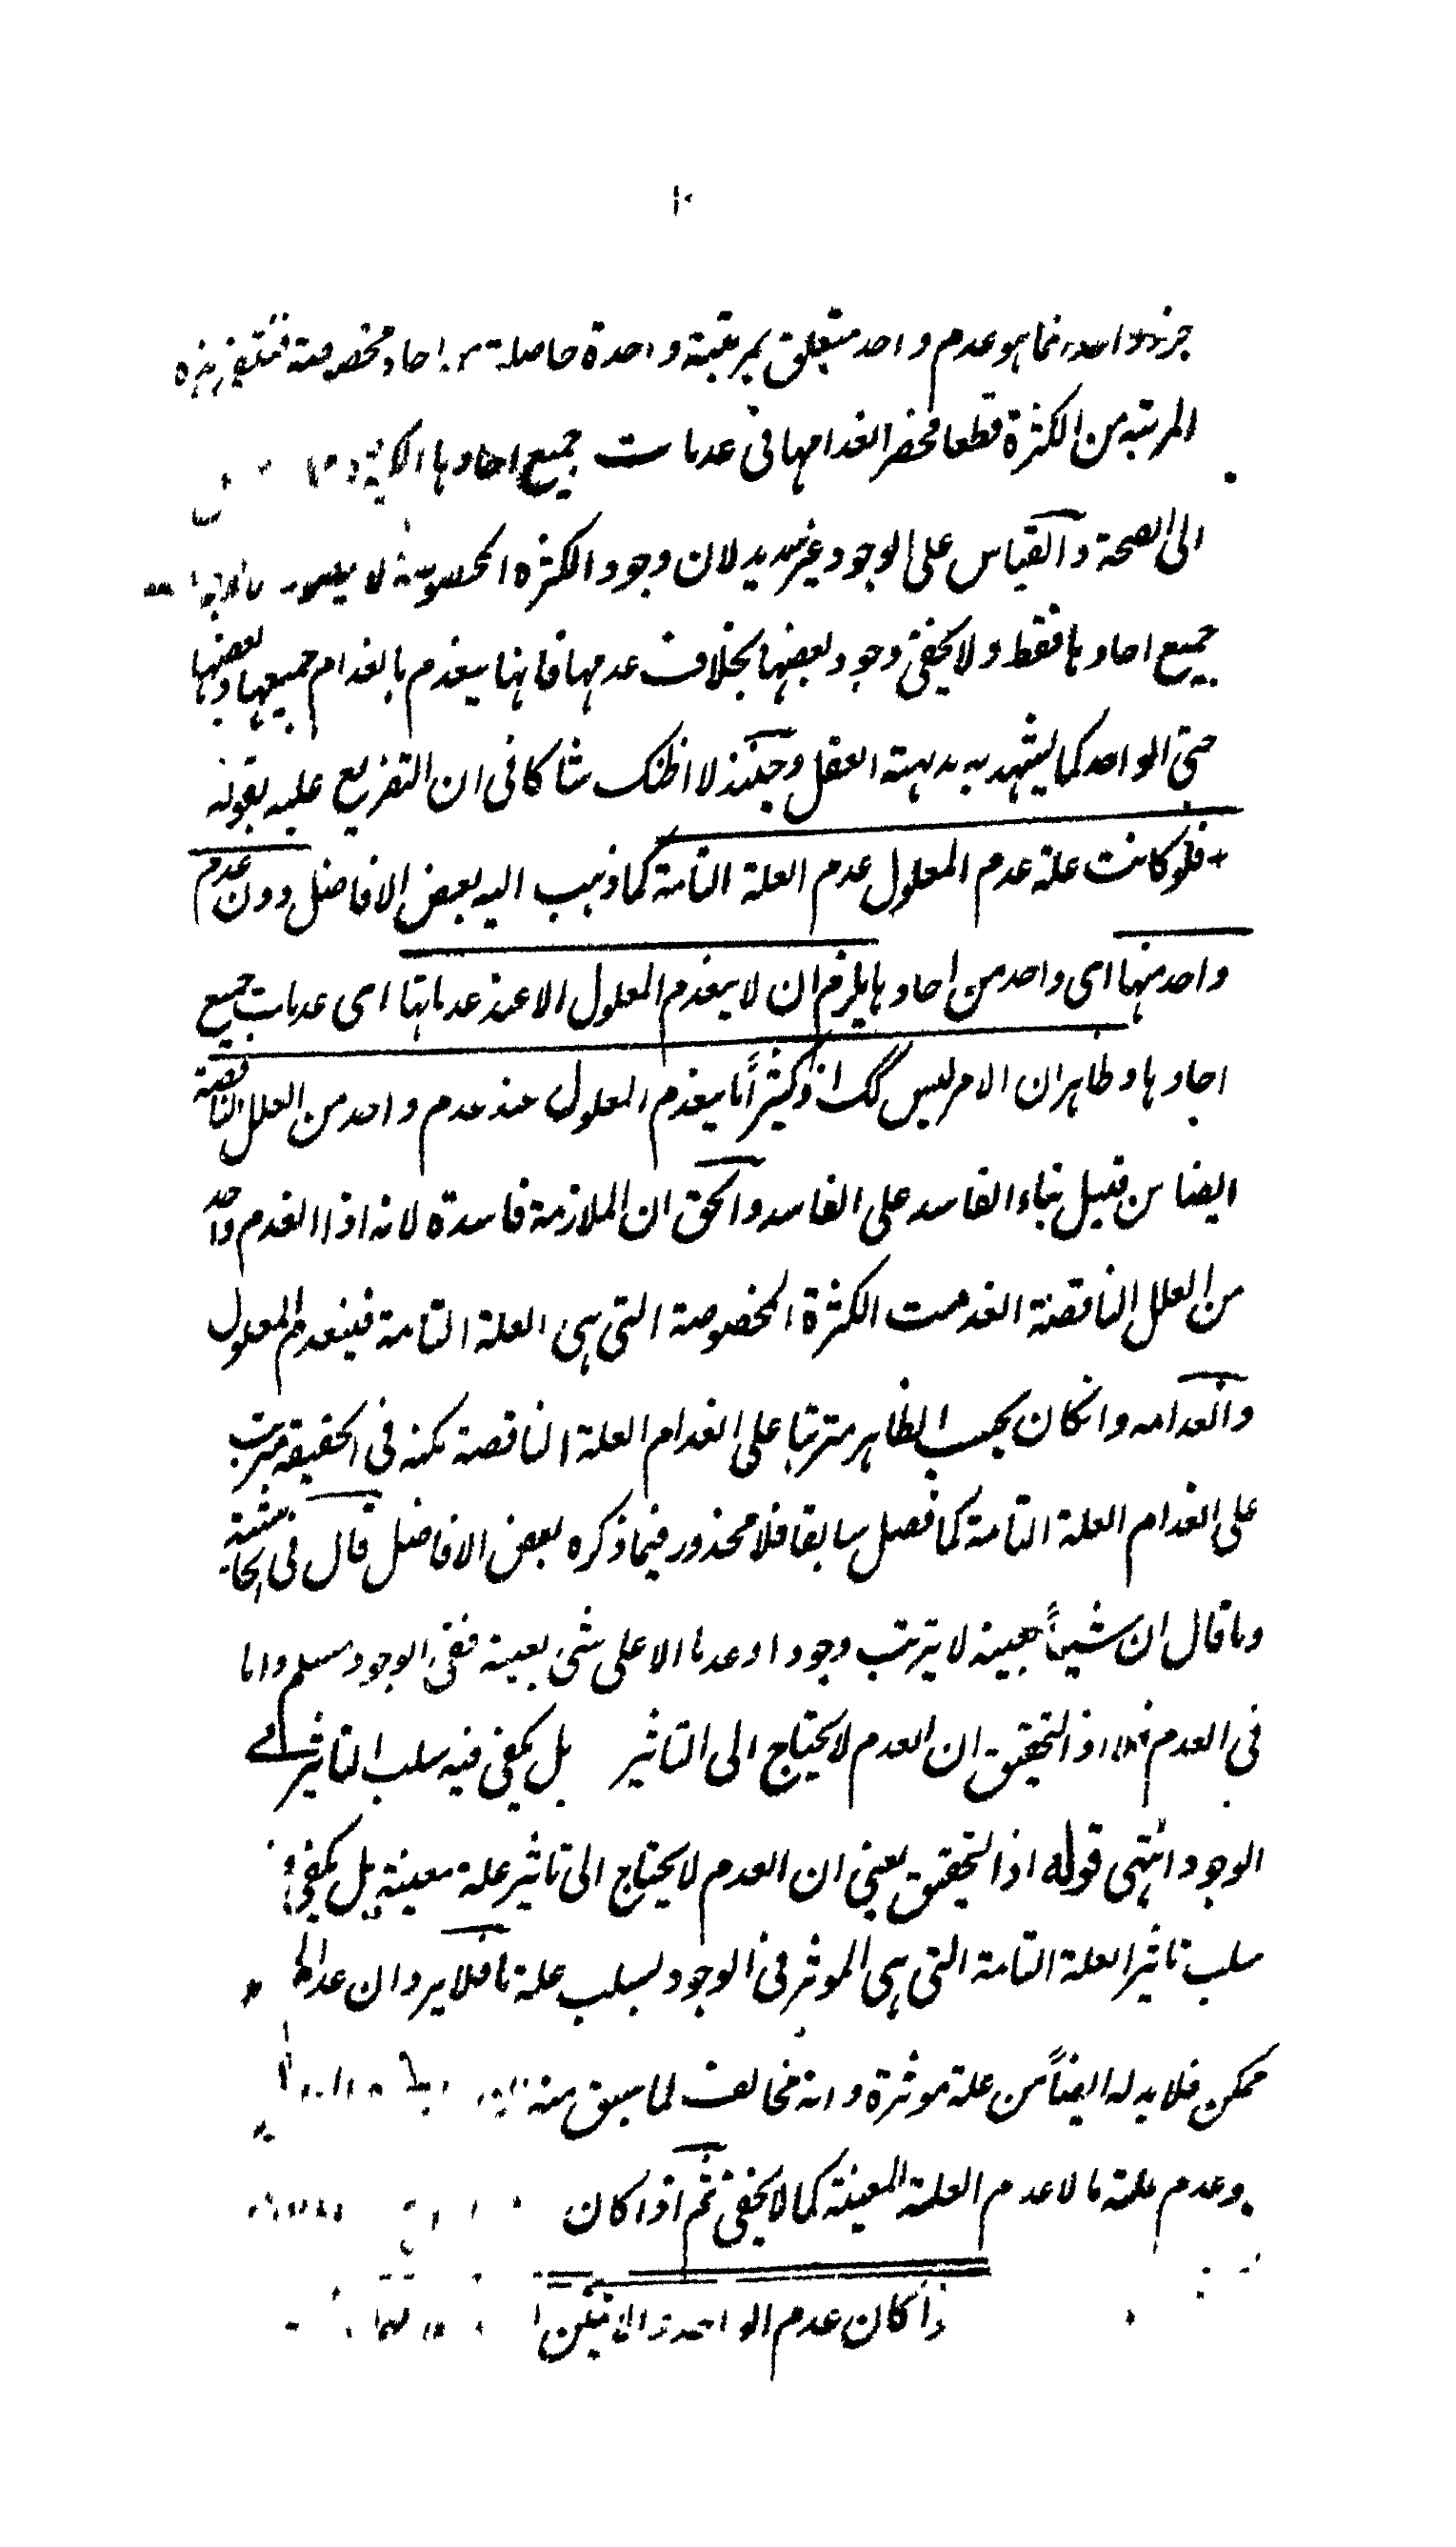 ١٠
جزء واحد انما هو عدم واحد متعلق بمرتبة واحدة حاصلة من احاد مخصوصة فتنتفي هذه
المرتبة من الكثرة قطعا فحصر انعدامها في عدمات جميع احادها
الى الصحة والقياس على الوجود غير سديد لان وجود الكثرة المخصوصة لا يتصور
جميع احادها فقط ولا يكفي وجود بعضها بخلاف عدمها فانها ينعدم بانعدام جميعها وبعضها
حتى الواحد كما يشهد به بديهة العقل وحينئذ لا اظنك شاكا في ان التفريع عليه بقوله
فلو كانت علة عدم المعلول عدم العلة التامة كما ذهب اليه بعض الافاضل دون عدم
واحد منها اى واحد من احادها يلزم ان لا ينعدم المعلول الا عند عدماتها اى عدمات جميع
احادها وظاهر ان الامر ليس كك اذ كثيراً ما ينعدم المعلول عند عدم واحد من العلل الناقصة
ايضا من قبيل بناء الفاسد على الفاسد والحق ان الملازمة فاسدة لانه اذا انعدم واحد
من العلل الناقصة انعدمت الكثرة المخصوصة التى هى العلة التامة فينعدم المعلول
وانعدامه وانكان بحسب الظاهر مترتبا على انعدام العلة الناقصة لكنه في الحقيقة مترتب
على انعدام العلة التامة كما فصل سابقا فلا محذور فيما ذكره بعض الافاضل قال في الحاشية
وما قال ان شيئاً بعينه لا يترتب وجودا وعدما الا على شئ بعينه ففي الوجود مسلم واما
في العدم فلا اذ التحقيق ان العدم لا يحتاج الى التاثير بل يكفي فيه سلب التاثير في
الوجود انتهى قوله اذ التحقيق يعني ان العدم لا يحتاج الى تاثير علة معينة بل يكفي فيه
سلب تاثير العلة التامة التى هى الموثر في الوجود لسلب علة ما فلا يرد ان عدم
ممكن فلا بد له ايضاً من علة موثرة وانه مخالف لما سبق منه
وعدم علة ما لا عدم العلة المعينة كما لا يخفى ثم اذا كان
اذا كان عدم الواحد والاثنين